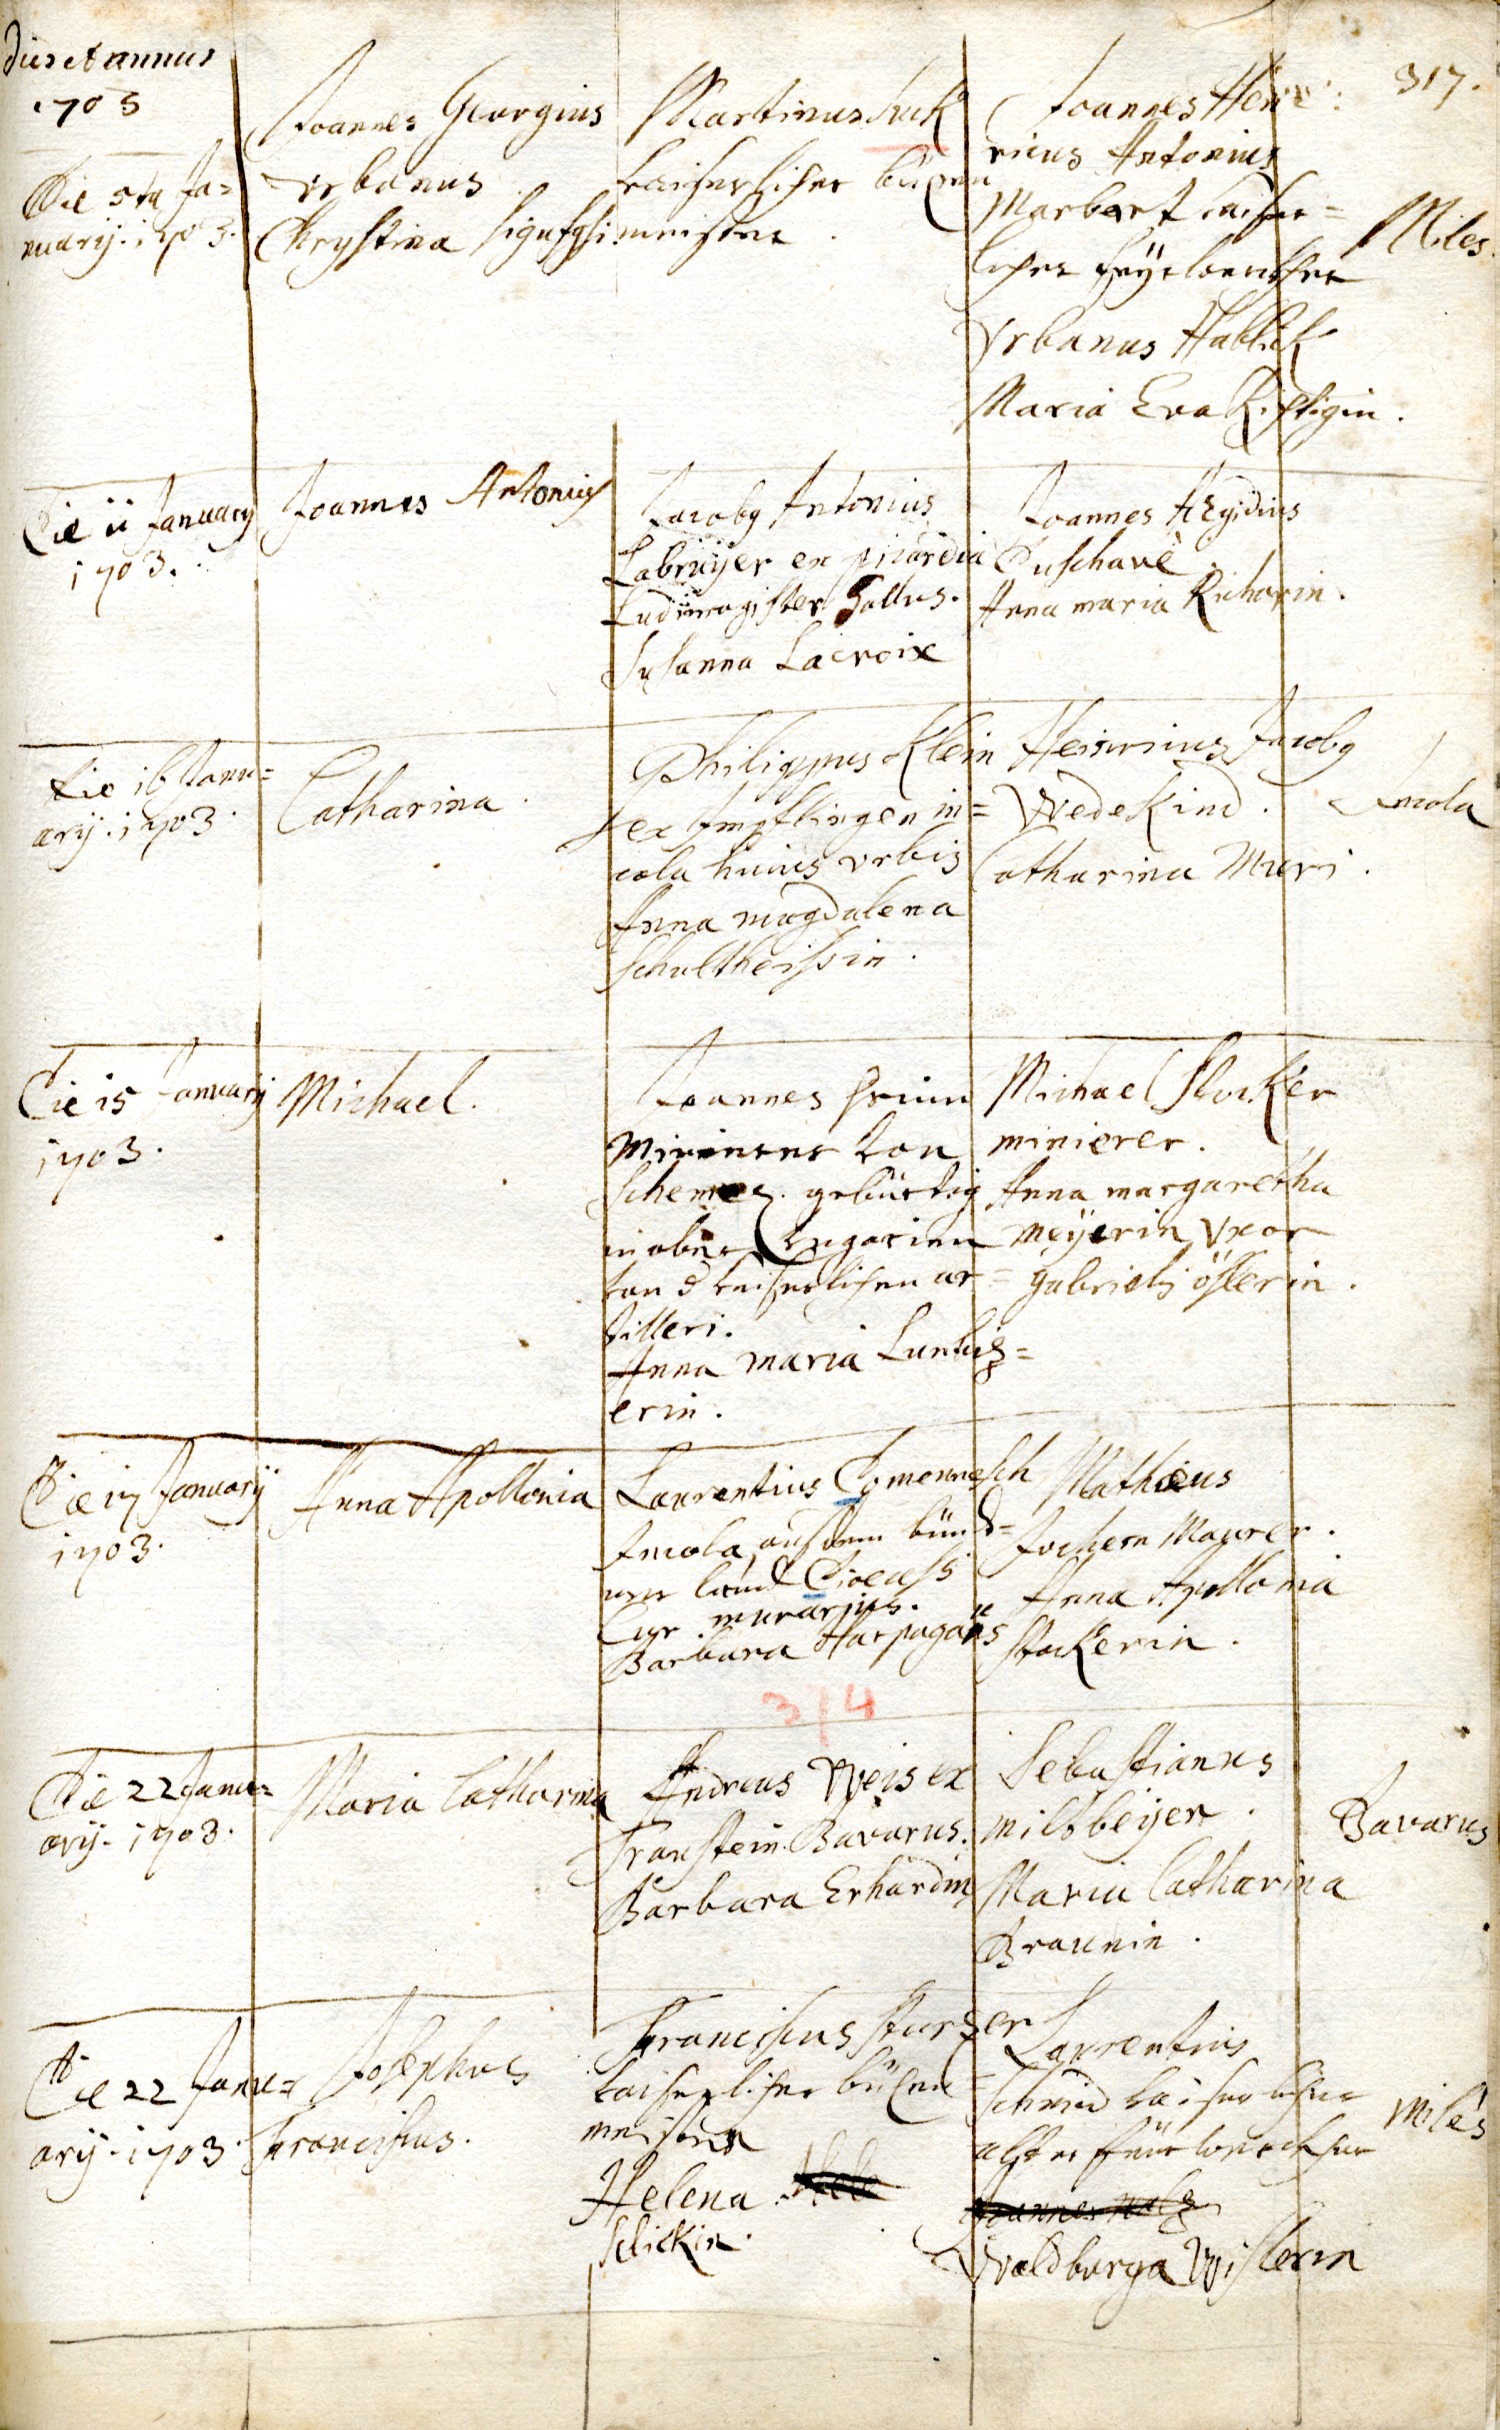 dies et annus
1703
317.
Die 5ta Ja=
nuarij. 1703.
Joannes Georgius
Urbanus.
Chrystina
Martinus Huk
kaiserlicher büxen
meister.
Joannes Hein
ricus Antonius
Marbert kaiser=
licher
Urbanus Hablik
Maria Eva
Miles.
Die 11 January
1703.
Joannes Antonius
Jacobg Antonius
Labruijer ex picardia
Ludimagister Gallus.
Susanna Lacroix
Joannes AEgidius
Duschave.
Anna maria Richarin.
Die 16 Janu=
arij. 1703.
Catharina.
Philippus Klein
ex Impflingen in=
cola huius urbis
Anna magdalena
Schultheissin.
Heinricus Jacobg
Wedekind.
Catharina Muri.
Incola
Die 15 January
1703.
Michael.
Joannes
Minirer von
Schemez. gebürtig
in ober Ungarien
von d kaiserlichen ar=
tilleri.
Anna maria
erin.
Michael Stocker
minierer.
Anna margaretha
Meyerin Uxor
gabrielis österin.
Die 17 Januarij
1703.
Anna Apollonia
Laurentius Comennesch
Incola, aus dem bünd=
ner land
murarius.
Barbara
Mathæus
Jochem Maurer.
Anna Apollonia
Stockerin.
314
Die 22 Janu=
arij. 1703.
Maria Catharina
Andreas Weis ex
Traustein. Bavarus.
Barbara Erhardin
Sebastianus
miltbeyer.
Maria Catharina
Braunin.
Bavarus
Die 22 Janu=
arij. 1703.
Josephus
Franciscus.
Franciscus Sturzer
kaiserlicher büxen=
meister
Helena
Schickin.
Laurentius
Schmid kaiserlicher
alter feürwercker
Joannes
Waldburga Wislerin
miles